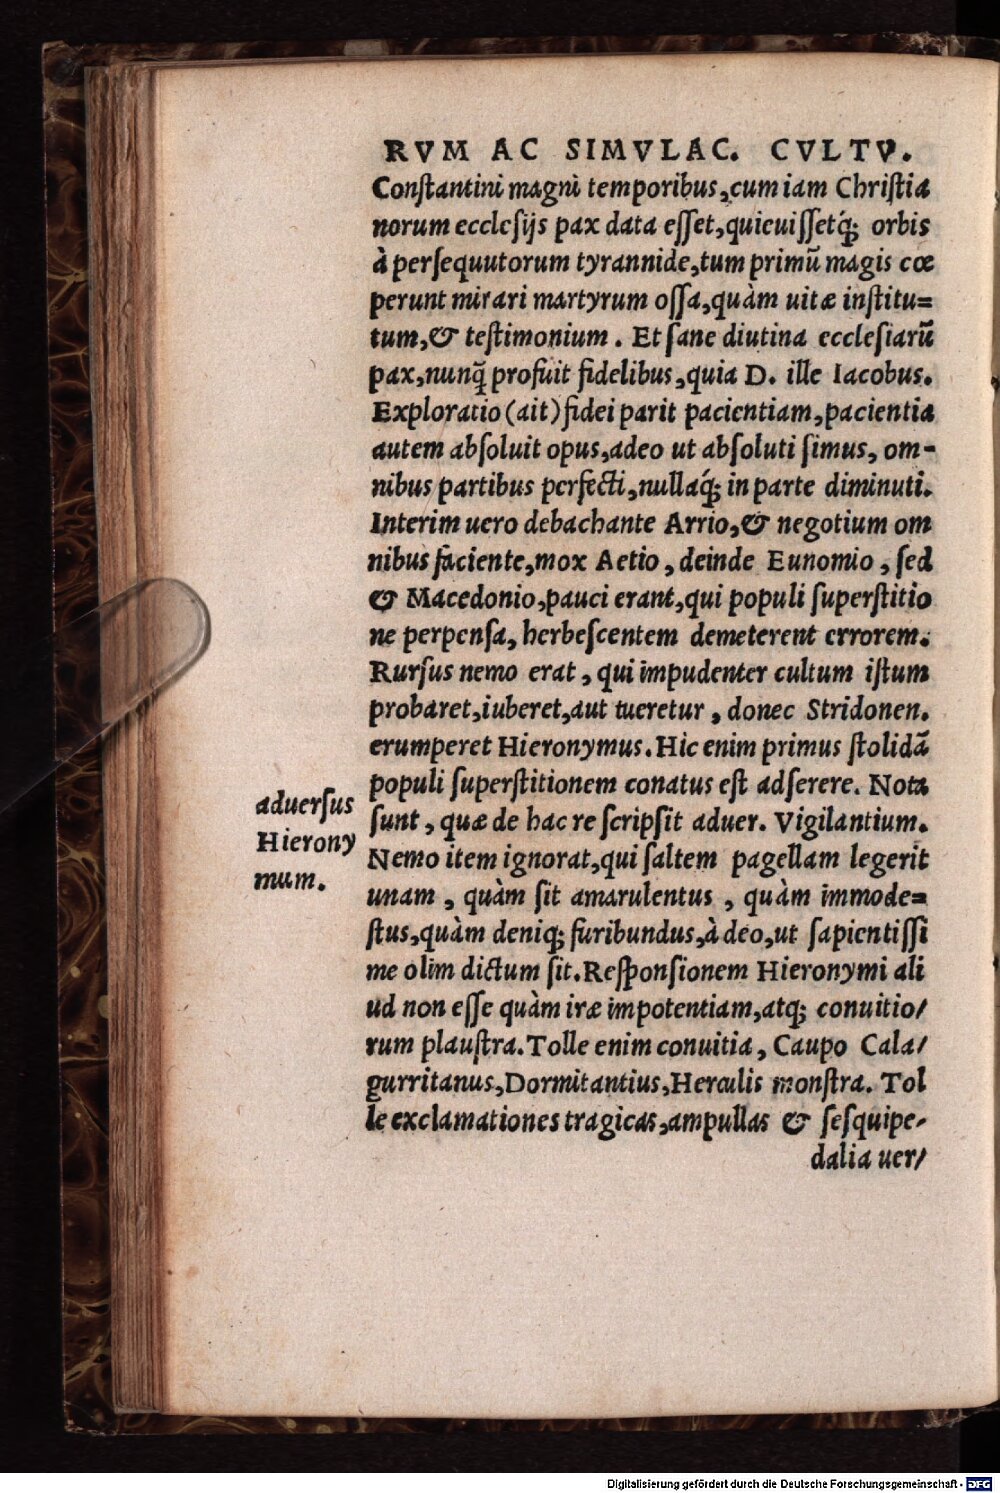 RVM AC SIMVLAC. CVLTV.
Constantini magni temporibus, cum iam Christia
norum ecclesijs pax data esset, quieuissetq́; orbis
à persequutorum tyrannide, tum primũ magis cœ
perunt mirari martyrum ossa, quàm uitæ institu=
tum, & testimonium. Et sane diutina ecclesiarũ
pax, nunq̃ profuit fidelibus, quia D. ille Iacobus.
Exploratio (ait) fidei parit pacientiam, pacientia
autem absoluit opus, adeo ut absoluti simus, om-
nibus partibus perfecti, nullaq́; in parte diminuti.
Interim uero debachante Arrio, & negotium om
nibus faciente, mox Aetio, deinde Eunomio, sed
& Macedonio, pauci erant, qui populi superstitio
ne perpensa, herbescentem demeterent errorem.
Rursus nemo erat, qui impudenter cultum istum
probaret, iuberet, aut tueretur, donec Stridonen.
erumperet Hieronymus. Hic enim primus stolidã
populi superstitionem conatus est adserere. Nota
sunt, quæ de hac re scripsit aduer. Vigilantium.
aduersus
Hierony
mum.
Nemo item ignorat, qui saltem pagellam legerit
unam, quàm sit amarulentus, quàm immode=
stus, quàm deniq; furibundus, à deo, ut sapientissi
me olim dictum sit. Responsionem Hieronymi ali
ud non esse quàm iræ impotentiam, atq; conuitio/
rum plaustra. Tolle enim conuitia, Caupo Cala/
gurritanus, Dormitantius, Herculis monstra. Tol
le exclamationes tragicas, ampullas & sesquipe/
dalia uer/
Digitalisierung gefördert durch die Deutsche Forschungsgemeinschaft - DFG